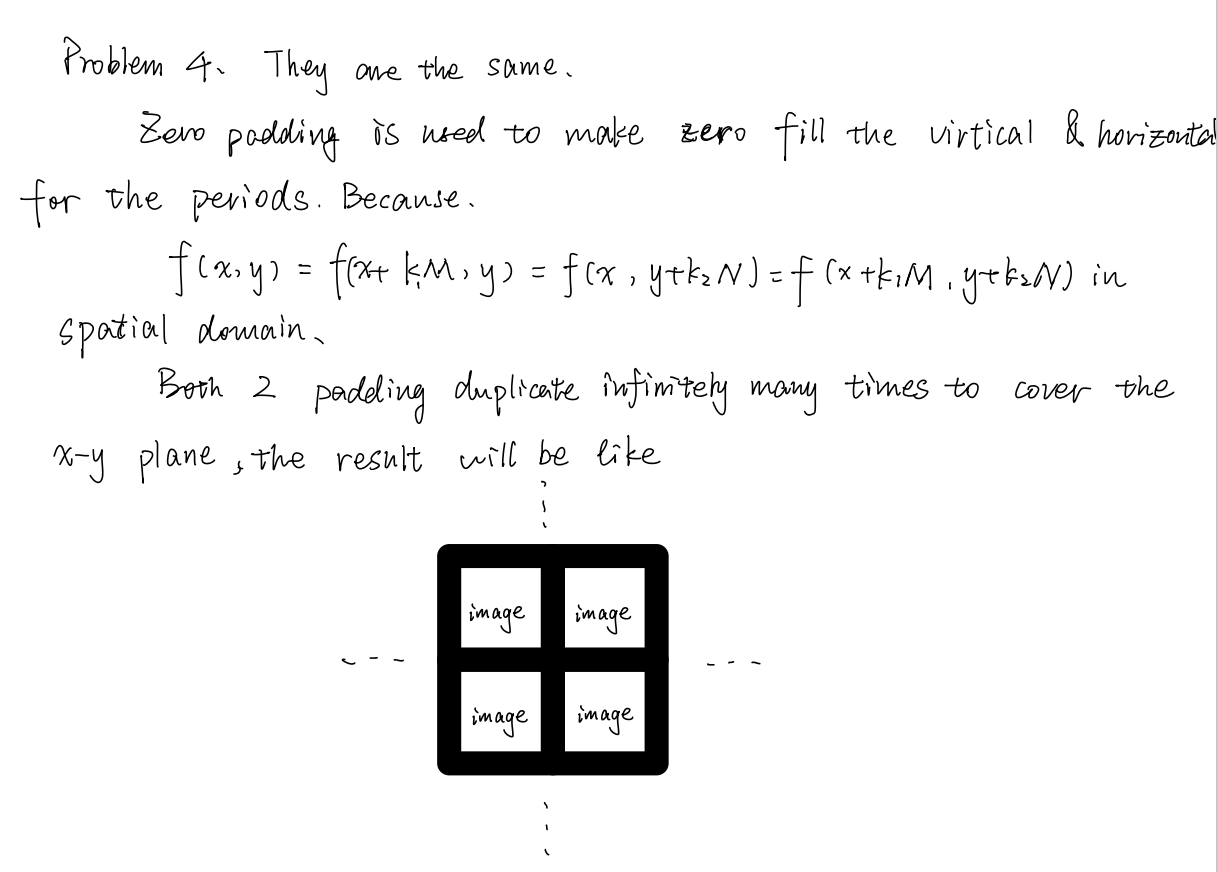 Problem 4、 They are the same.
Zero padding is used to make zero fill the virtical & horizontal
for the periods. Because.
f(x,y) = f(x+k₁M,y) = f(x,y+k₂N) = f(x+k₁M,y+k₂N) in
spatial domain、
Both 2 padding duplicate infinitely many times to cover the
x-y plane, the result will be like
image image
image image